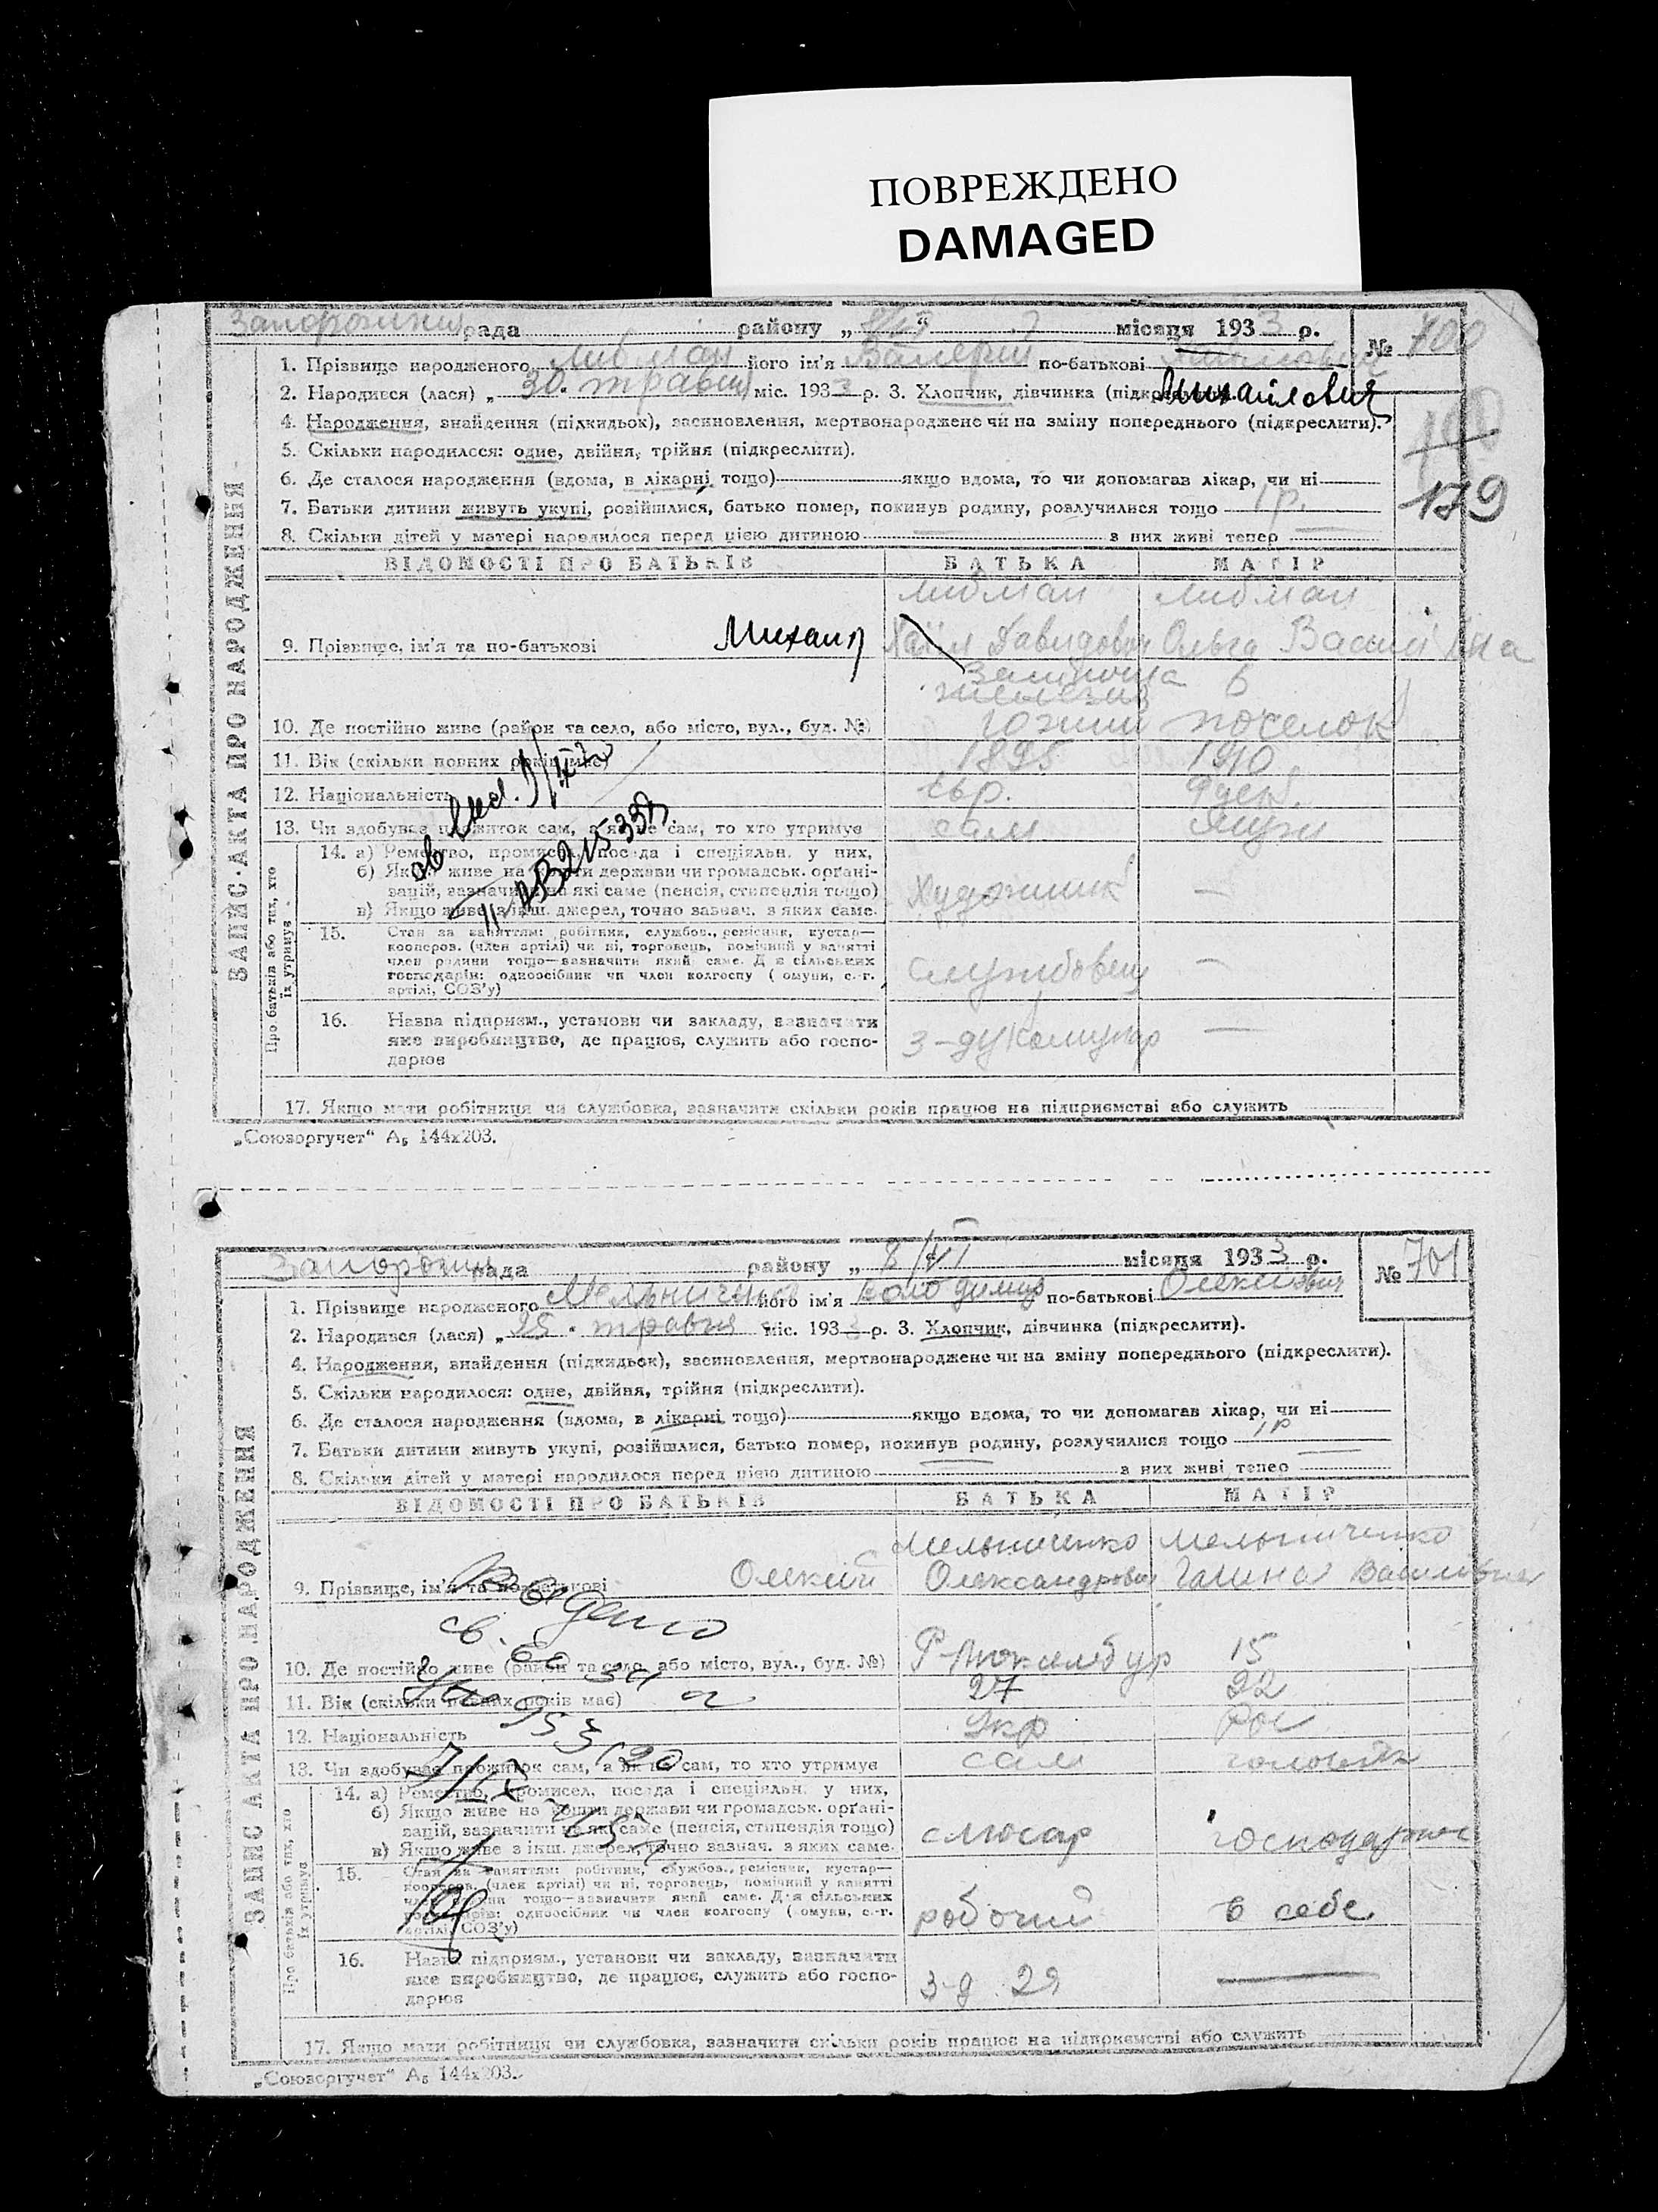 ПОВРЕЖДЕНО
DAMAGED
рада району „ “ місяця 1933 р.
№ 700
1. Прізвище народженого Либман його ім'я Валерий по-батькові
Михайлович
2. Народився (лася) „30“ травня міс. 1933 р. 3. Хлопчик, дівчинка
4. Народження, знайдення (підкидьок), засиновлення, мертвонароджене чи на зміну попереднього (підкреслити).
5. Скільки народилося: одне, двійня, трійня (підкреслити).
6. Де сталося народження (вдома, в лікарні тощо) якщо вдома, то чи допомагав лікар, чи ні
179
7. Батьки дитини живуть укупі, розійшлися, батько помер, покинув родину, розлучилися тощо 1 р.
8. Скільки дітей у матері народилося перед цією дитиною з них живі тепер
ЗАПИС-АКТА ПРО НАРОДЖЕННЯ
ВІДОМОСТІ ПРО БАТЬКІВ БАТЬКА МАТІР
Либман Либман
9. Прізвище, ім'я та по-батькові Михаил Давидович Ольга Василівна
10. Де постійно живе (район та село, або місто, вул., буд. №) поселок
11. Вік (скільки повних років має) 1895 1910
12. Національність євр.
13. Чи здобуває прожиток сам, а як не сам, то хто утримує сам
Про батьків або тих, хто їх утримує
14. а) Ремество, промисел, посада і спеціяльн. у них,
б) Якщо живе на кошти держави чи громадськ. органі-
зацій, зазначити на які саме (пенсія, стипендія тощо)
в) Якщо живе з інш. джерел, точно зазнач. з яких саме.
Художник —
15. Стан за заняттям: робітник, службов., ремісник, кустар—
кооперов. (член артілі) чи ні, торговець, помічний у занятті
член родини тощо—зазначити який саме. Для сільських
господарів: одноосібник чи член колгоспу (комуни, с.-г.
артілі, СОЗ'у)
службовец —
16. Назва підприєм., установи чи закладу, зазначити
яке виробництво, де працює, служить або госпо-
дарює
з-д Комунар —
17. Якщо мати робітниця чи службовка, зазначити скільки років працює на підприємстві або служить
„Союзоргучет“ А₅ 144x203.
рада району „8/VI“ місяця 1933 р.
№ 701
1. Прізвище народженого Мельниченко його ім'я Володимир по-батькові Олексієвич
2. Народився (лася) „25“ травня міс. 1933 р. 3. Хлопчик, дівчинка (підкреслити).
4. Народження, знайдення (підкидьок), засиновлення, мертвонароджене чи на зміну попереднього (підкреслити).
5. Скільки народилося: одне, двійня, трійня (підкреслити).
6. Де сталося народження (вдома, в лікарні тощо) якщо вдома, то чи допомагав лікар, чи ні
7. Батьки дитини живуть укупі, розійшлися, батько помер, покинув родину, розлучилися тощо 1 р
8. Скільки дітей у матері народилося перед цією дитиною з них живі тепер
ЗАПИС АКТА ПРО НАРОДЖЕННЯ
ВІДОМОСТІ ПРО БАТЬКІВ БАТЬКА МАТІР
Мельниченко Мельниченко
9. Прізвище, ім'я та по-батькові Олексій Олександрович Галина Василівна
10. Де постійно живе (район та село, або місто, вул., буд. №) 15
11. Вік (скільки повних років має) 27 22
12. Національність Укр Рос
13. Чи здобуває прожиток сам, а як не сам, то хто утримує сам чоловік
Про батьків або тих, хто їх утримує
14. а) Ремество, промисел, посада і спеціяльн. у них,
б) Якщо живе на кошти держави чи громадськ. органі-
зацій, зазначити на які саме (пенсія, стипендія тощо)
в) Якщо живе з інш. джерел, точно зазнач. з яких саме.
слюсар господарює
15. Стан за заняттям: робітник, службов., ремісник, кустар—
кооперов. (член артілі) чи ні, торговець, помічний у занятті
член родини тощо—зазначити який саме. Для сільських
господарів: одноосібник чи член колгоспу (комуни, с.-г.
артілі, СОЗ'у)
робочий в себе
16. Назва підприєм., установи чи закладу, зазначити
яке виробництво, де працює, служить або госпо-
дарює
з-д 29 —
17. Якщо мати робітниця чи службовка, зазначити скільки років працює на підприємстві або служить
„Союзоргучет“ А₅ 144x203.